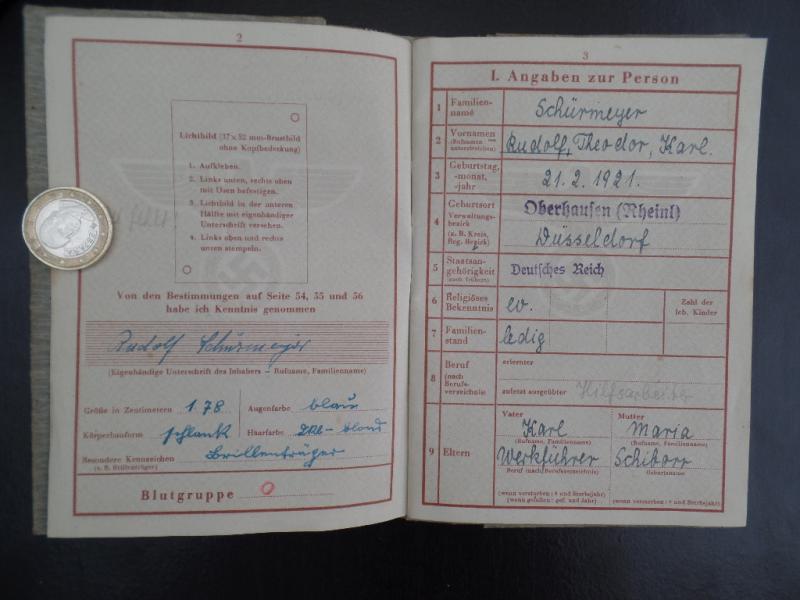 2
Lichtbild (37 × 52 mm-Brustbild
ohne Kopfbedeckung)
1. Aufkleben.
2. Links unten, rechts oben
mit Ösen befestigen.
3. Lichtbild in der unteren
Hälfte mit eigenhändiger
Unterschrift versehen.
4. Links oben und rechts
unten stempeln.
Von den Bestimmungen auf Seite 54, 55 und 56
habe ich Kenntnis genommen
Rudolf Schürmeyer
(Eigenhändige Unterschrift des Inhabers – Rufname, Familienname)
Größe in Zentimetern 178 Augenfarbe blau
Körperbauform schlank Haarfarbe dkl-blond
Besondere Kennzeichen Brillenträger
(z. B. Brillenträger)
Blutgruppe O
3
I. Angaben zur Person
1 Familienname Schürmeyer
2 Vornamen (Rufnamen unterstreichen) Rudolf, Theodor, Karl.
3 Geburtstag, -monat, -jahr 21.2.1921.
4 Geburtsort Verwaltungsbezirk (z. B. Kreis, Reg. Bezirk) Oberhausen (Rheinl)
Düsseldorf
5 Staatsangehörigkeit (auch frühere) Deutsches Reich
6 Religiöses Bekenntnis ev. Zahl der leb. Kinder
7 Familienstand ledig
8 Beruf (nach Berufsverzeichnis) erlernter
zuletzt ausgeübter Hilfsarbeiter
9 Eltern
Vater Mutter
Karl Maria
(Rufname, Familienname) (Rufname, Familienname)
Werkführer Schiborr
Beruf (nach Berufsverzeichnis) Geburtsname
(wenn verstorben: † und Sterbejahr)
(wenn gefallen: gef. und Jahr) (wenn verstorben: † und Sterbejahr)